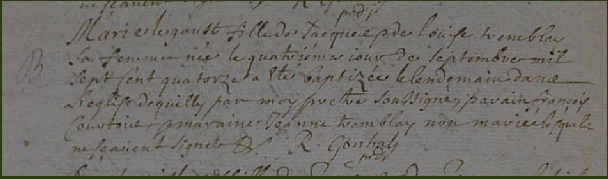 ne sçauent signer R Gonhay
pdr
Marie legoust fille de Jacque e de louise tremblay
sa femme née le quatriéme iour de septembre mil
sept sent quatorze a été baptizée le lendemain dans
L'eglise de quilly par moy prêtre soussigné parain françois
Courtois, maraine Jeanne tremblay non mariee lesquels
ne sçauent signer R. Gonhay
pdr
B